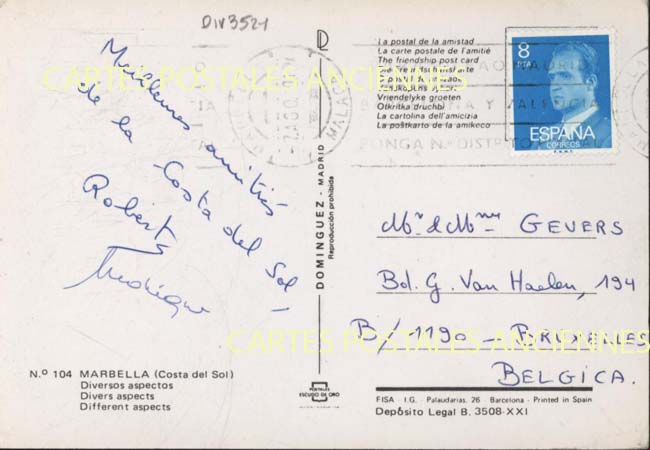 DIV3521
Meilleures amitiés
de la Costa del Sol,
Roberte
La postal de la amistad
La carte postale de l'amitié
The friendship post card
Vriendelyke groeten
Otkritka druchbi
La cartolina dell'amicizia
La poŝtkarto de la amikeco
8
PTA
ESPAÑA
CORREOS
F.N.M.T.
MALAGA
PONGA N.º DISTRITO POSTAL
CARTES POSTALES ANCIENNES
DOMINGUEZ - MADRID
Reproducción prohibida
Mr & Mme GEVERS
Bd. G. Van Haelen, 194
B/-1190 - BRUXELLES
BELGICA.
CARTES POSTALES ANCIENNES
N.º 104 MARBELLA (Costa del Sol)
Diversos aspectos
Divers aspects
Different aspects
POSTALES
ESCUDO DE ORO
FISA - I.G. - Palaudarias, 26 - Barcelona - Printed in Spain
Depósito Legal B. 3508-XXI